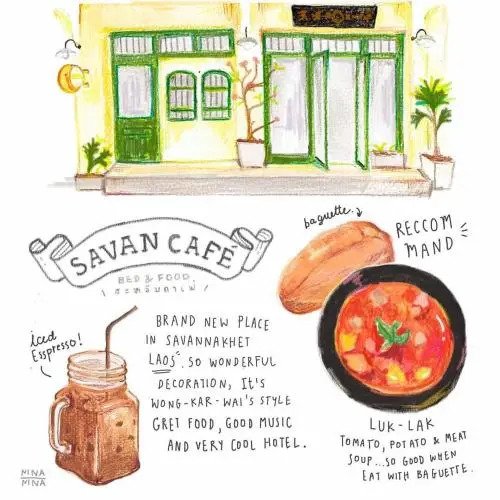 SAVAN CAFÉ
BED & FOOD
baguette.
RECCOM
MAND
iced
Esspresso!
BRAND NEW PLACE
IN SAVANNAKHET
LAOS. SO WONDERFUL
DECORATION, IT'S
WONG-KAR-WAI'S STYLE
GRET FOOD, GOOD MUSIC
AND VERY COOL HOTEL.
LUK-LAK
TOMATO, POTATO & MEAT
SOUP...SO GOOD WHEN
EAT WITH BAGUETTE.
NINA
NINA